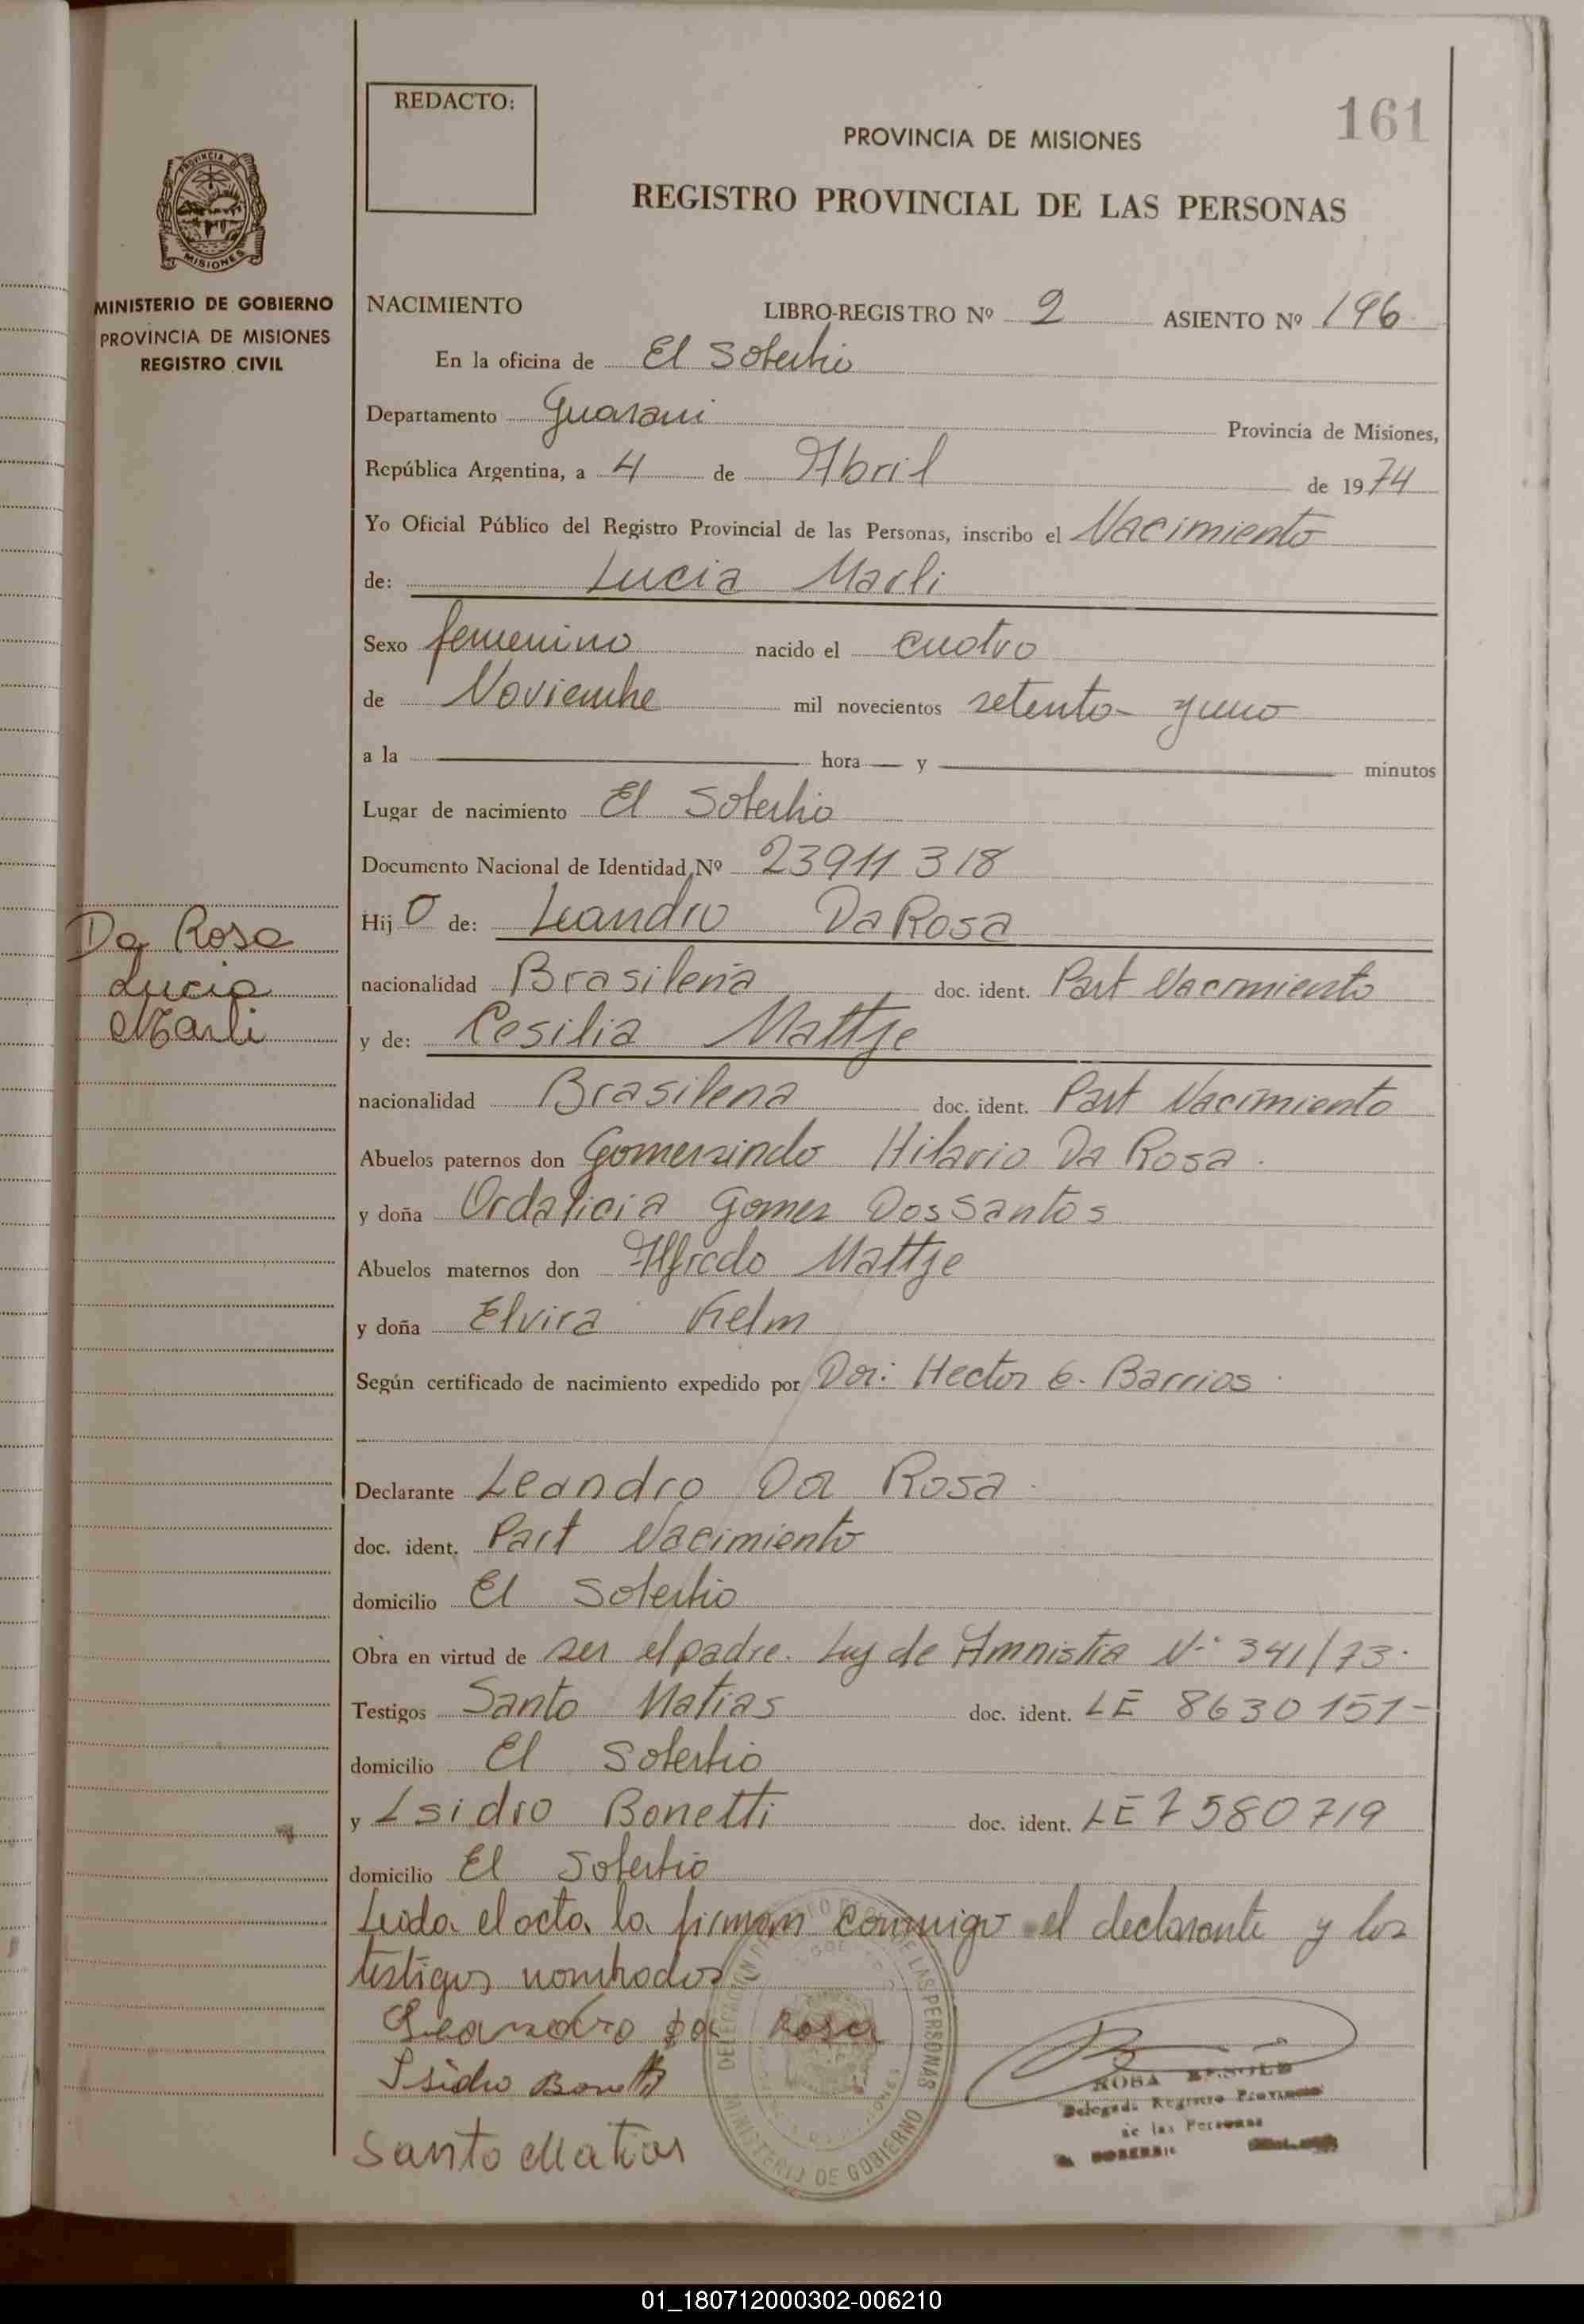 REDACTO:
161
PROVINCIA DE MISIONES
REGISTRO PROVINCIAL DE LAS PERSONAS
PROVINCIA DE
MISIONES
MINISTERIO DE GOBIERNO
PROVINCIA DE MISIONES
REGISTRO CIVIL
NACIMIENTO
LIBRO-REGISTRO Nº 2 ASIENTO Nº 196
En la oficina de El Soberbio
Departamento Guarani Provincia de Misiones,
República Argentina, a 4 de Abril de 1974
Yo Oficial Público del Registro Provincial de las Personas, inscribo el Nacimiento
de: Lucia Marli
Sexo femenino nacido el cuatro
de Noviembre mil novecientos setenta y uno
a la hora y minutos
Lugar de nacimiento El Soberbio
Documento Nacional de Identidad Nº 23911318
Hij O de: Leandro Da Rosa
Da Rosa
Lucia
Marli
nacionalidad Brasileña doc. ident. Part Nacimiento
y de: Cesilia Mattje
nacionalidad Brasilena doc. ident. Part Nacimiento
Abuelos paternos don Gomersindo Hilario Da Rosa.
y doña Ordalicia Gomez Dos Santos
Abuelos maternos don Alfredo Mattje
y doña Elvira Kelm
Según certificado de nacimiento expedido por Dor: Hector E. Barrios
Declarante Leandro Da Rosa
doc. ident. Part Nacimiento
domicilio El Soberbio
Obra en virtud de ser el padre. Ley de Amnistia Nº 341/73.
Testigos Santo Matias doc. ident. LE 8630151-
domicilio El Soberbio
y Isidro Bonetti doc. ident. LE 7580719
domicilio El Soberbio
Leida el acta la firman conmigo el declarante y los
testigos nombrados
Leandro da Rosa
Isidro Bonetti
Santo Matias
DE LAS PERSONAS
MINISTERIO DE GOBIERNO
ROSA
Delegada Registro Provincial
de las Personas
01_180712000302-006210